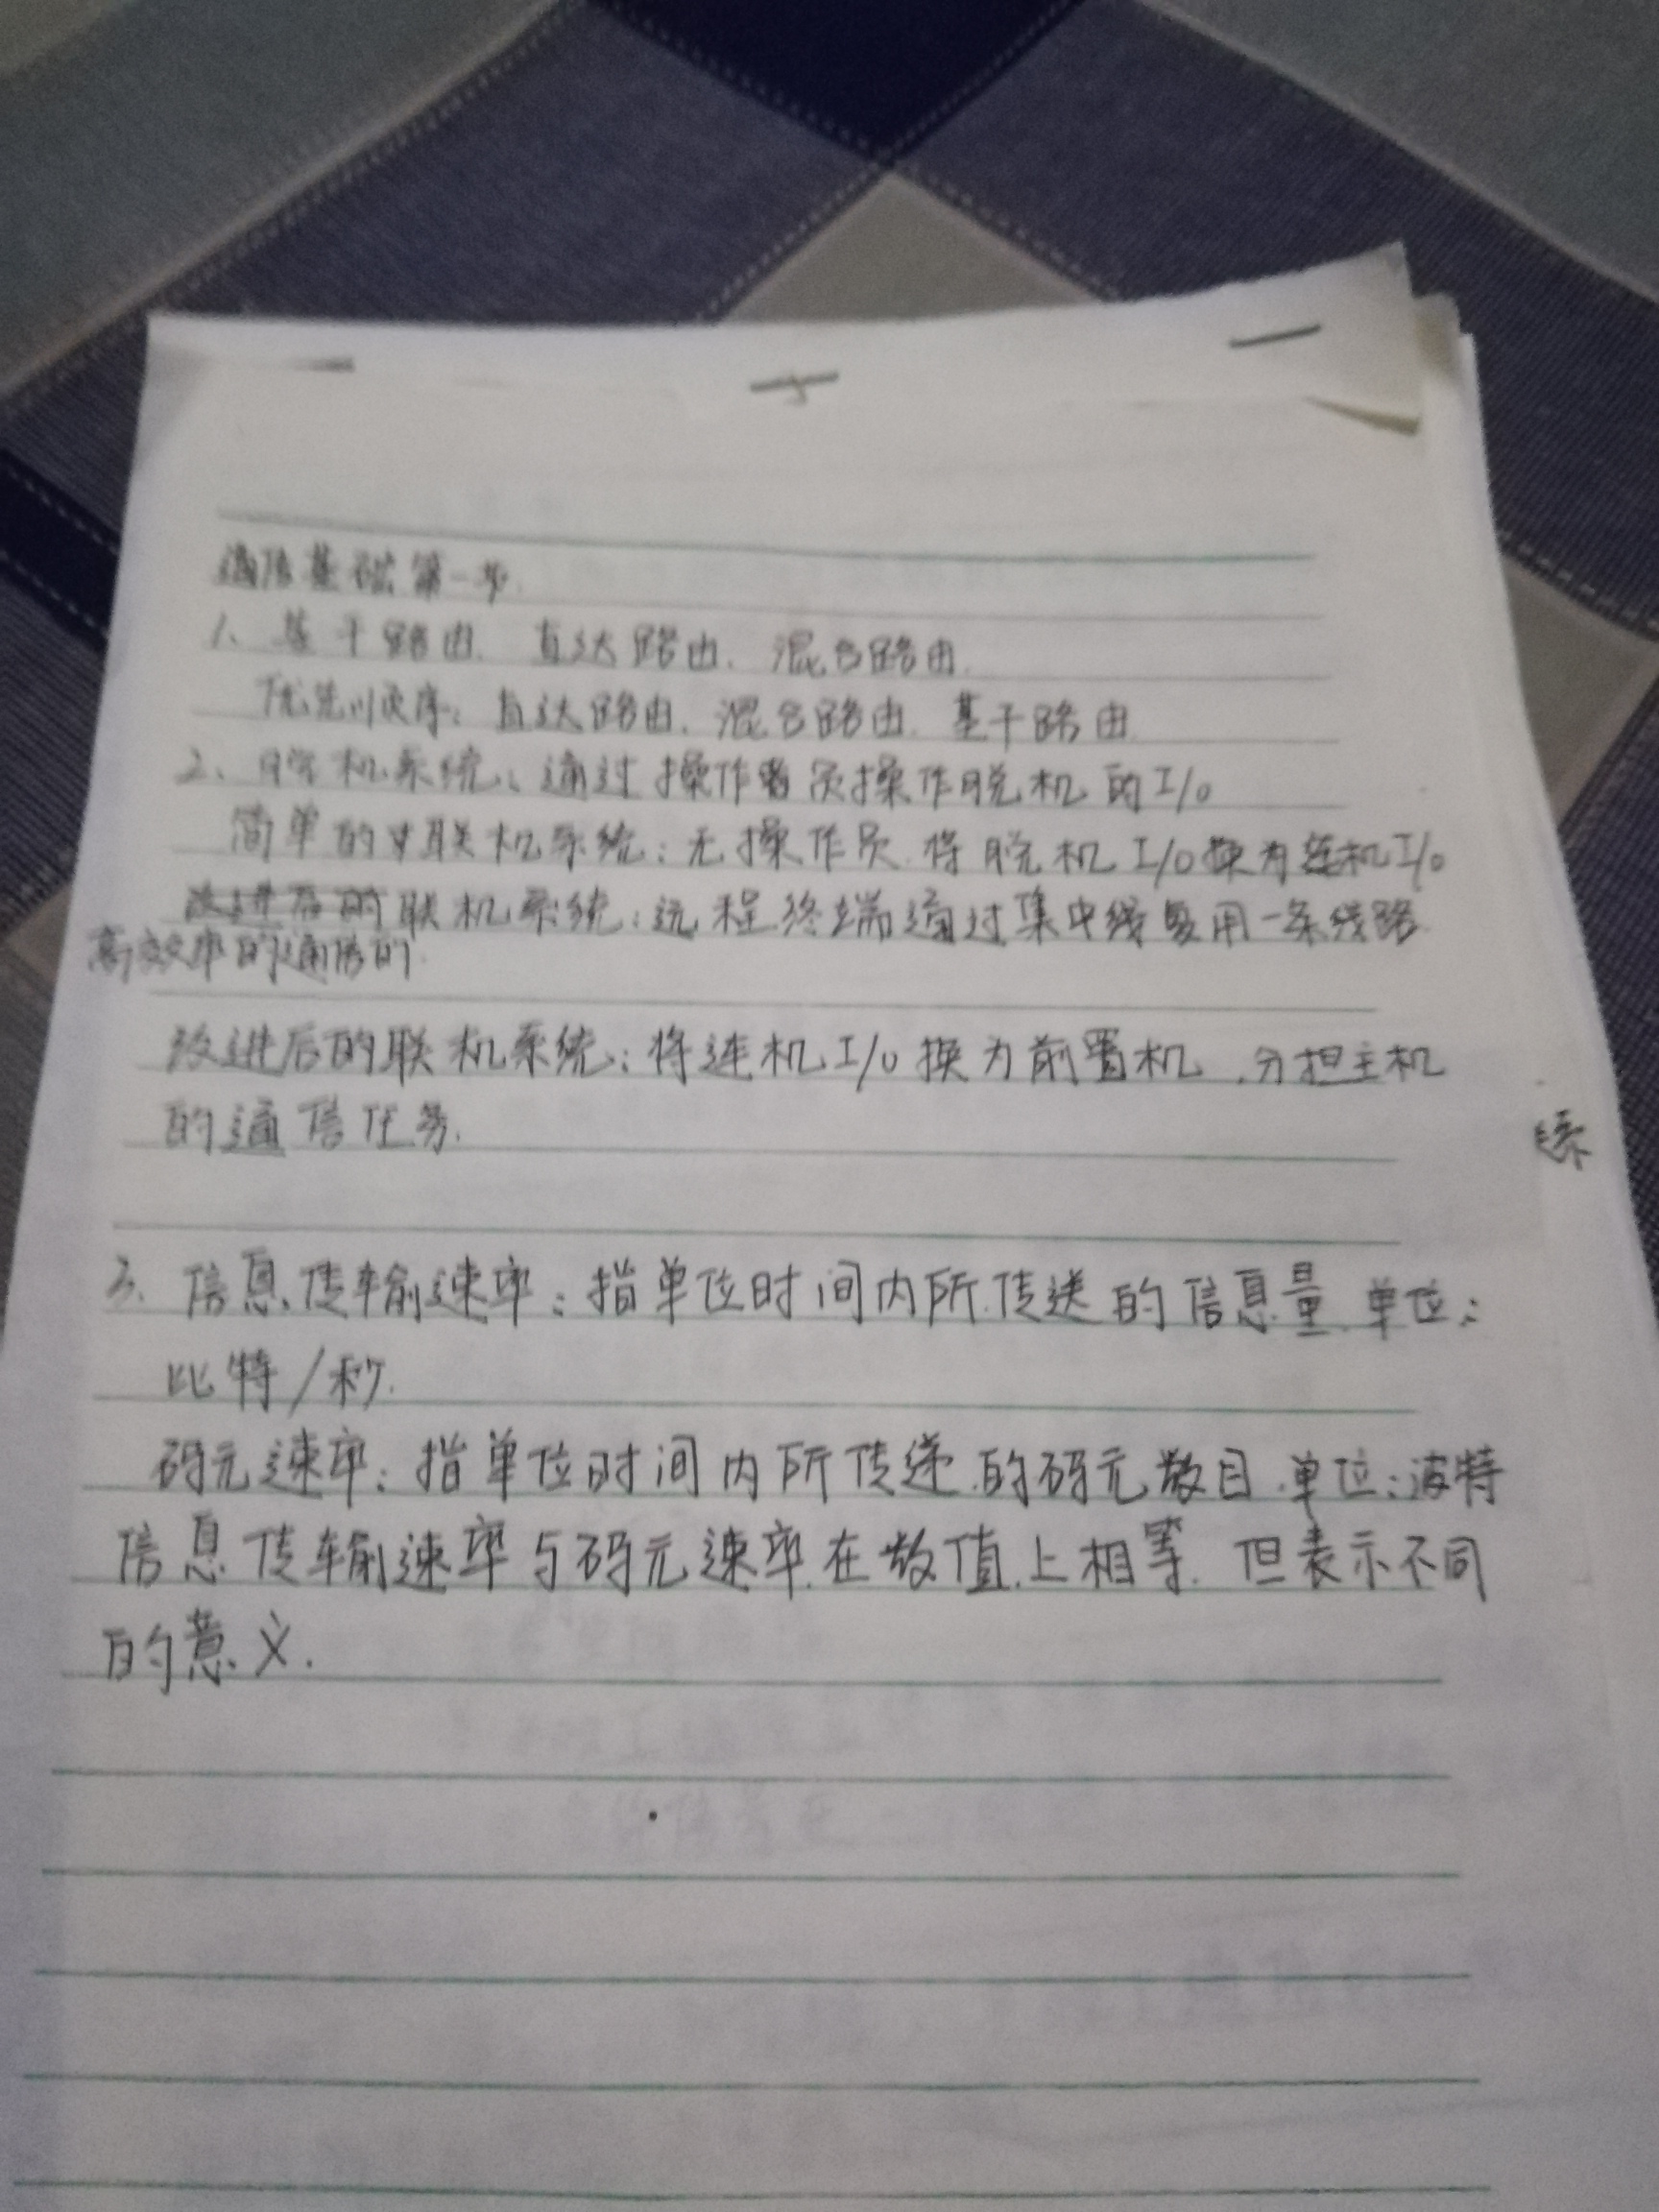 通信基础第一步.
1、基干路由. 直达路由. 混合路由.
优先顺序: 直达路由. 混合路由. 基干路由.
2、脱机系统: 通过操作员操作脱机的I/o
简单的联机系统: 无操作员. 将脱机I/o换为连机I/o
联机系统: 远程终端通过集中线复用一条线路.
高效率的通信的
改进后的联机系统: 将连机I/o换为前置机, 分担主机
的通信任务.
练
3. 信息传输速率: 指单位时间内所传送的信息量. 单位:
比特/秒.
码元速率: 指单位时间内所传递的码元数目. 单位: 波特
信息传输速率与码元速率在数值上相等. 但表示不同
的意义.